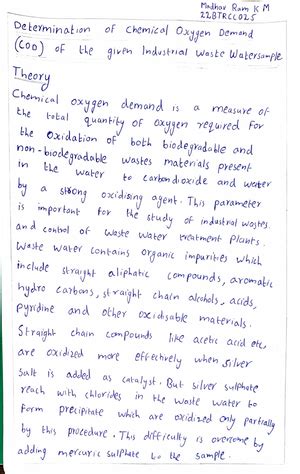 Madhav Ram K M
22BTRCL025
Determination of Chemical Oxygen Demand
(COD) of the given Industrial Waste Watersample
Theory
Chemical oxygen demand is a measure of
the total quantity of oxygen required for
the Oxidation of both biodegradable and
non-biodegradable wastes materials present
in the water to carbondioxide and water
by a strong oxidising agent. This parameter
is important for the study of industrial wastes
and control of waste water treatment plants.
Waste water contains organic impurities which
include straight aliphatic compounds, aromatic
hydro carbons, straight chain alcohols, acids,
pyridine and other oxidisable materials.
Straight chain compounds like acetic acid etc,
are oxidized more effectively when silver
salt is added as catalyst. But silver sulphate
reach with chlorides in the waste water to
form precipitate which are oxidized only partially
by this procedure. This difficulty is overcome by
adding mercuric sulphate to the sample.